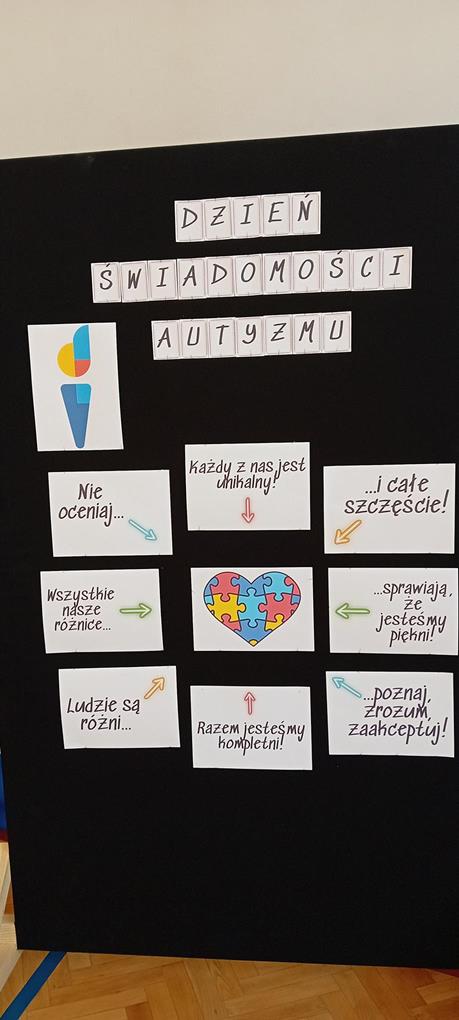 DZIEŃ
ŚWIADOMOŚCI
AUTYZMU
Nie
oceniaj...
Każdy z nas jest
unikalny!
...i całe
szczęście!
Wszystkie
nasze
różnice...
...sprawiają,
że
jesteśmy
piękni!
Ludzie są
różni...
Razem jesteśmy
kompletni!
...poznaj,
zrozum,
zaakceptuj!